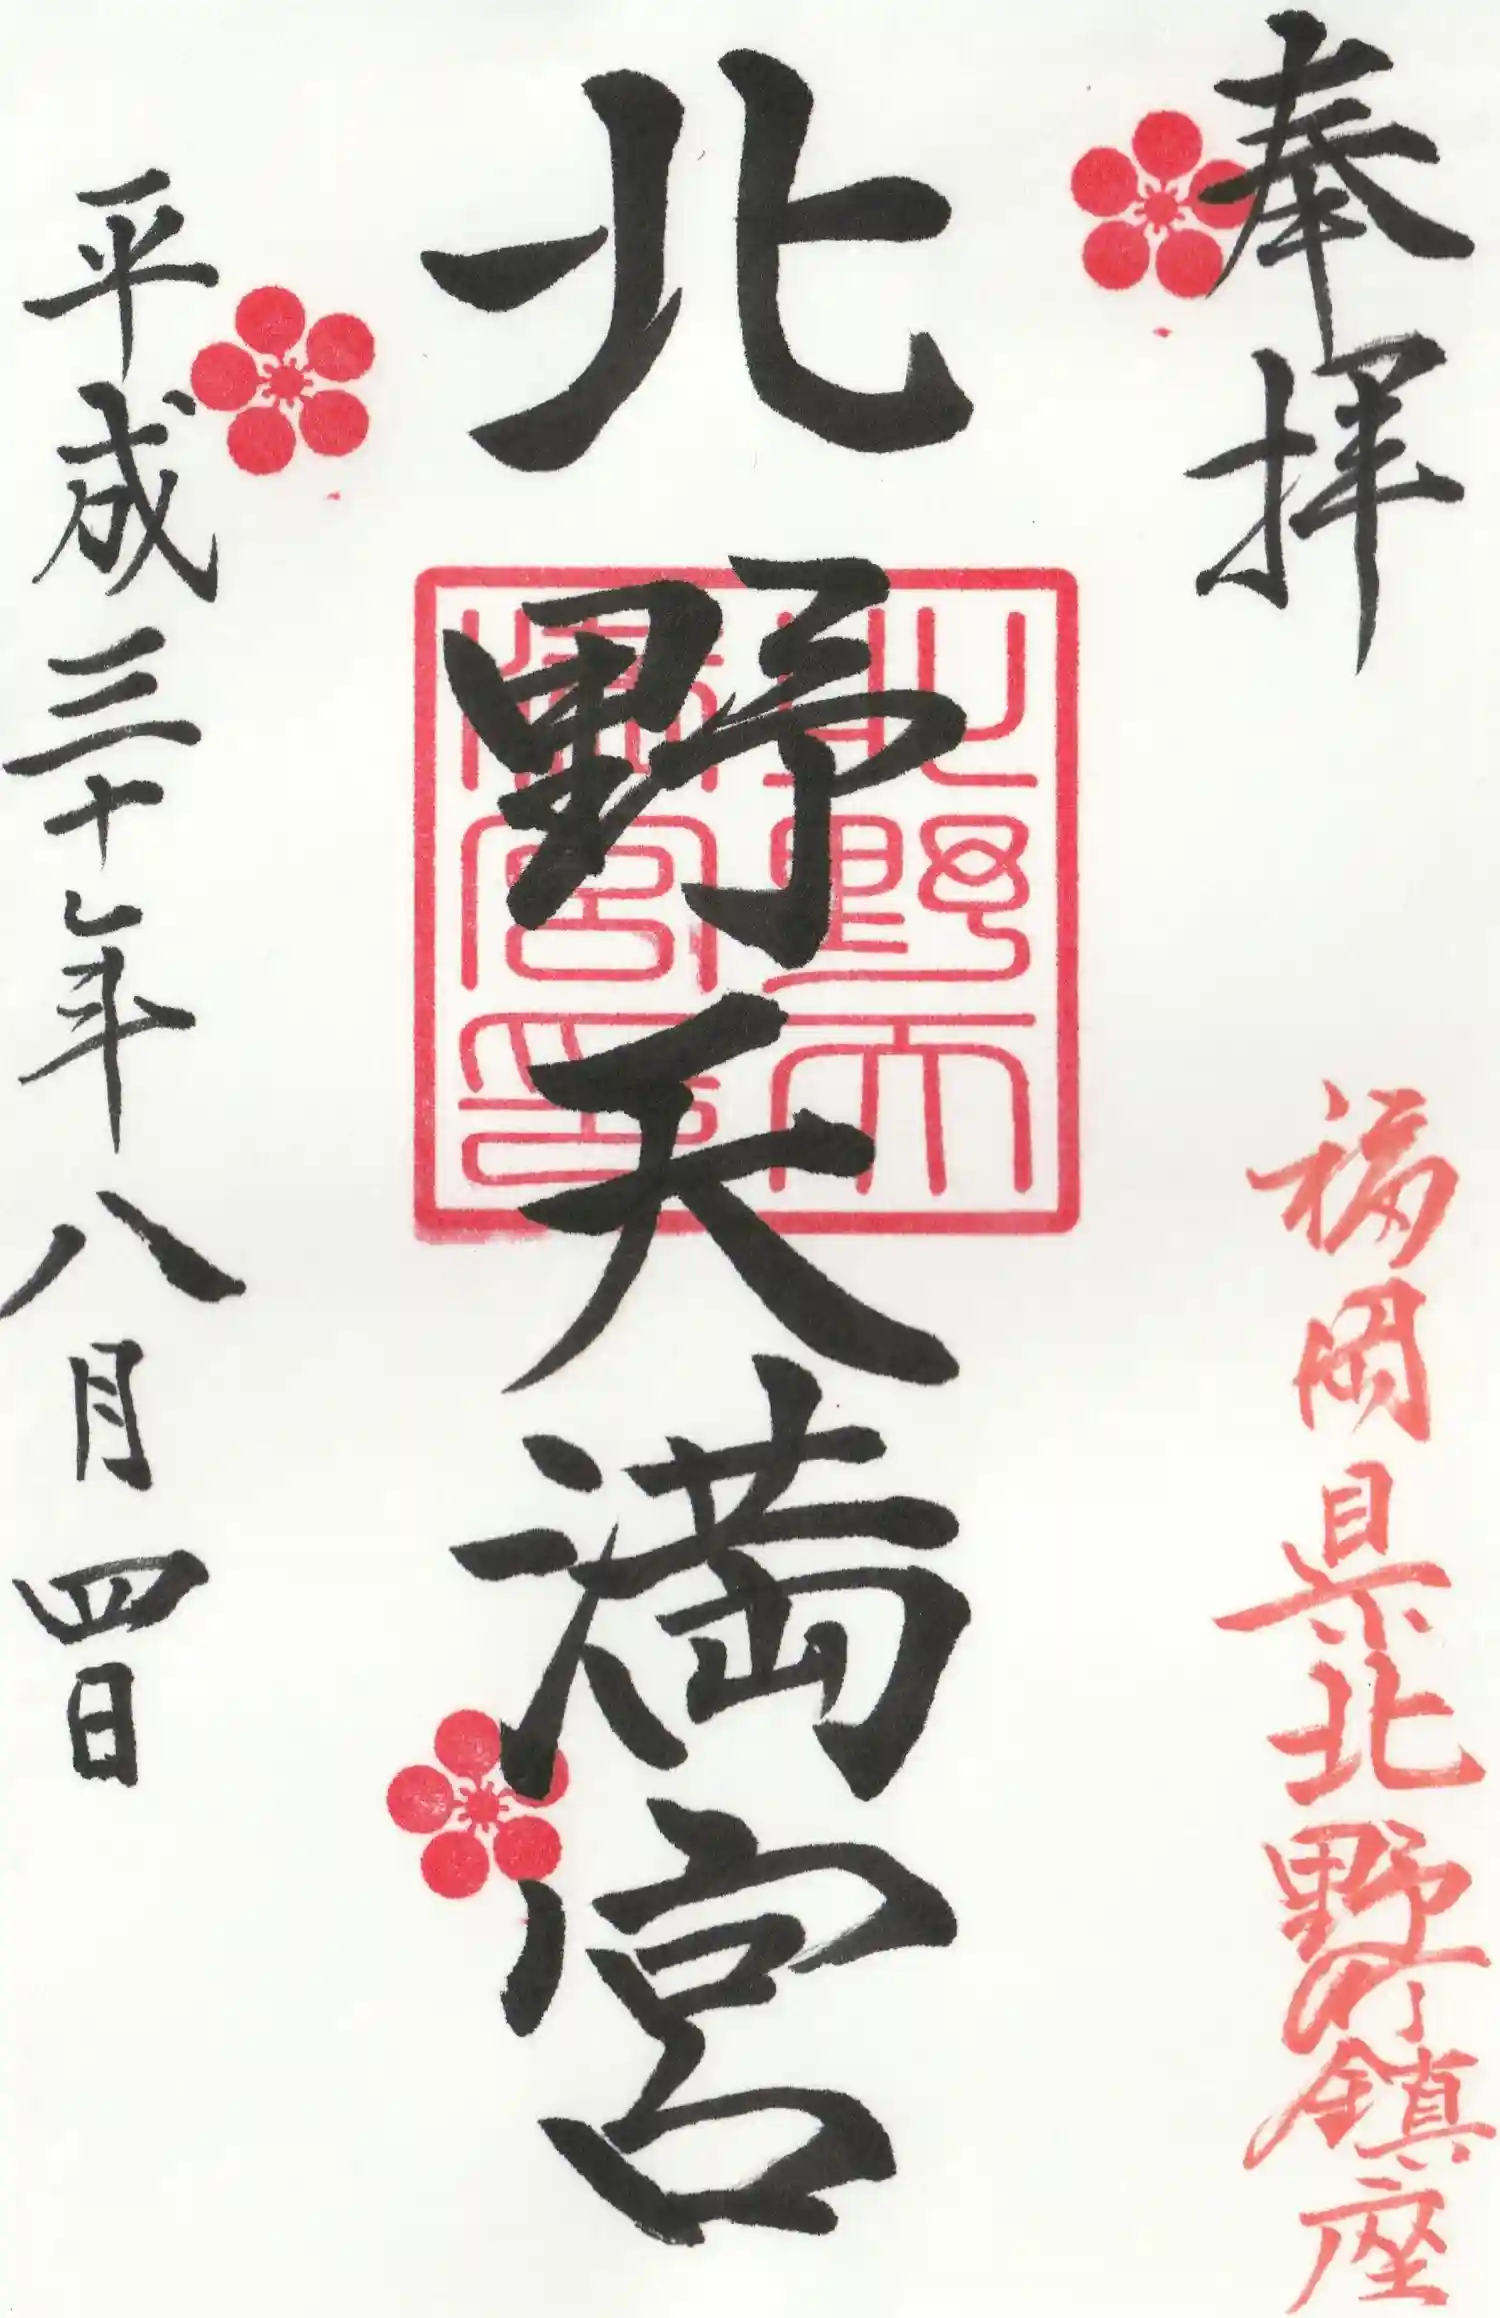 奉拝
福岡県北野町鎮座
北野天満宮
北野天満宮印
平成三十年八月四日